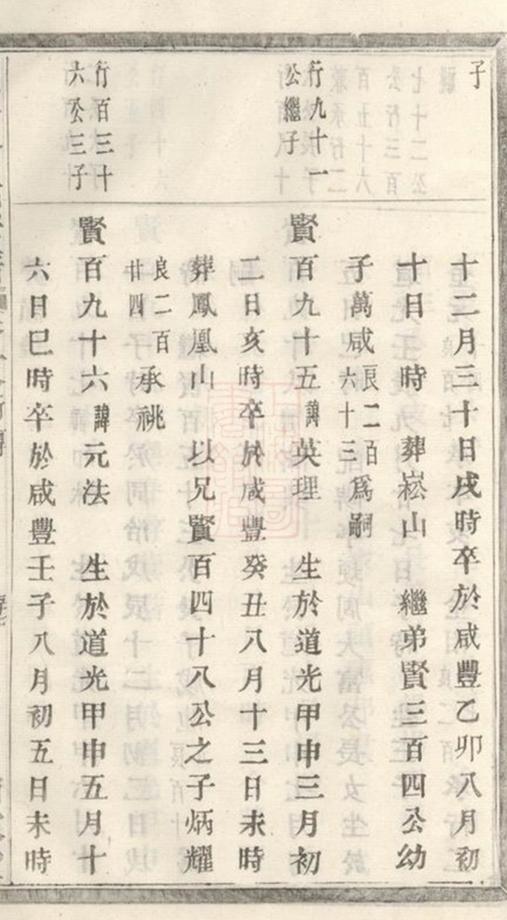 子
十二月三十日戌時卒於咸豐乙卯八月初
十日 時 葬崧山 繼弟賢三百四公幼
子萬咸良二百六十三爲嗣
行九十一
公繼子
賢百九十五諱英理 生於道光甲申三月初
二日亥時卒於咸豐癸丑八月十三日未時
葬鳳凰山 以兄賢百四十八公之子炳耀
良二百廿四承祧
行百三十
六公三子
賢百九十六諱元法 生於道光甲申五月十
六日巳時卒於咸豐壬子八月初五日未時